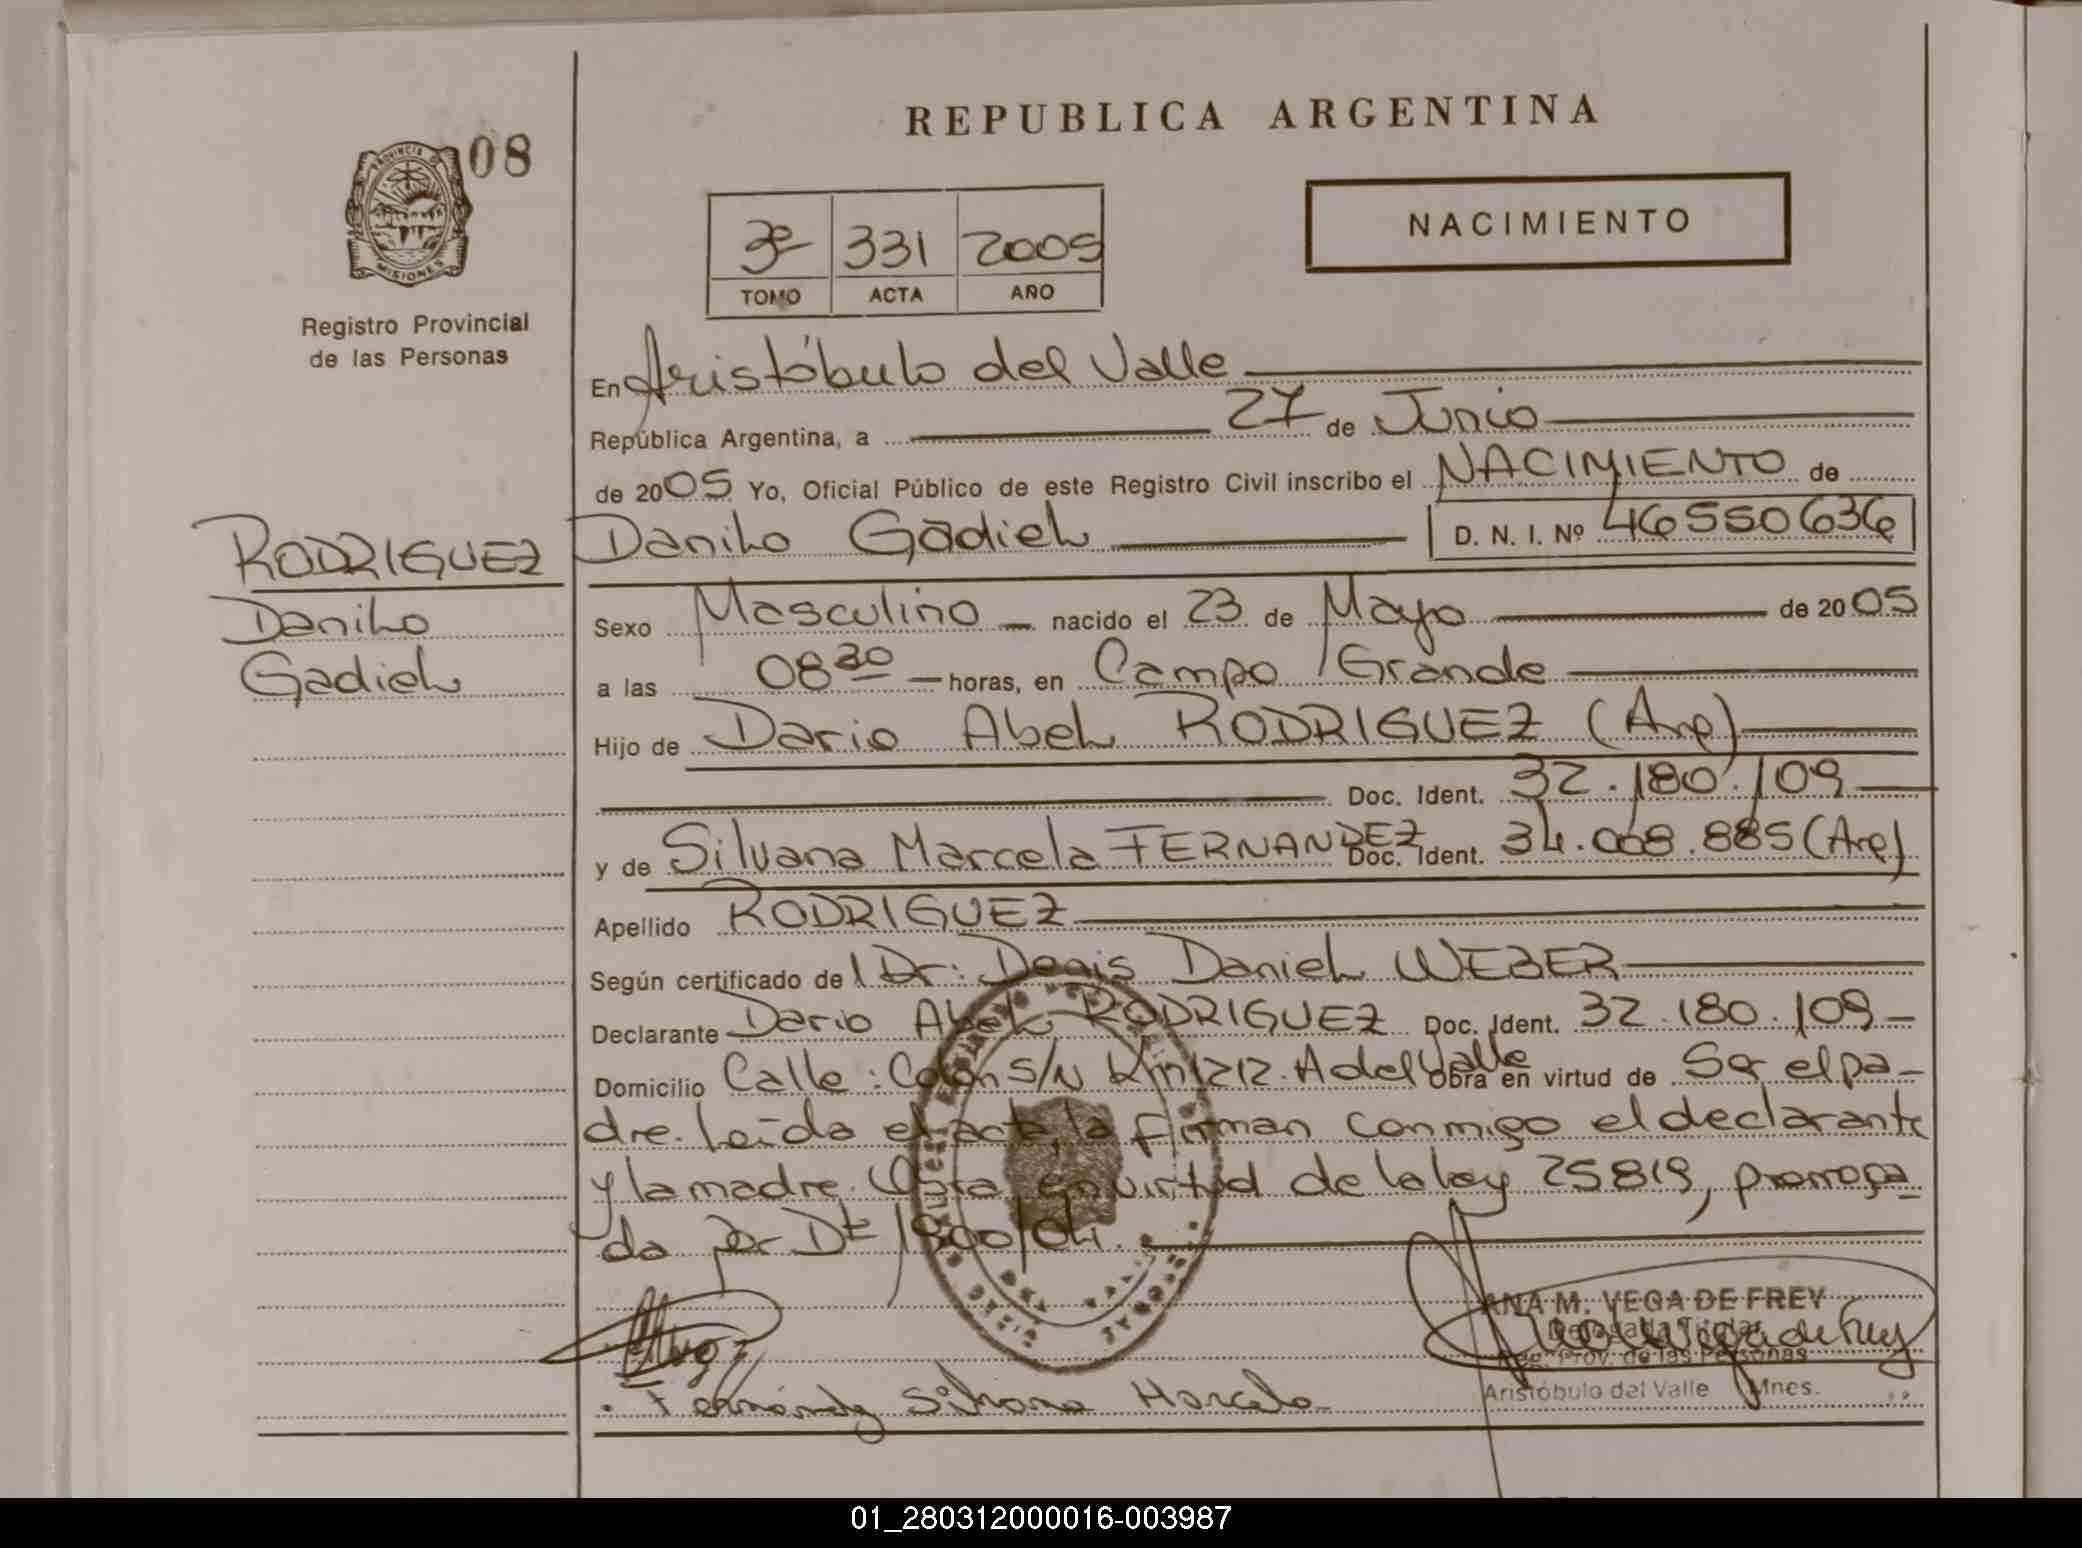 08
PROVINCIA DE
MISIONES
Registro Provincial
de las Personas
RODRIGUEZ
Danilo
Gadiel
REPUBLICA ARGENTINA
NACIMIENTO
3º 331 2005
TOMO ACTA AÑO
En Aristóbulo del Valle
República Argentina, a 27 de Junio
de 2005 Yo, Oficial Público de este Registro Civil inscribo el NACIMIENTO de
Danilo Gadiel D. N. I. Nº 46550636
Sexo Masculino nacido el 23 de Mayo de 2005
a las 08 30 horas, en Campo Grande
Hijo de Dario Abel RODRIGUEZ (Arg)
Doc. Ident. 32.180.109
y de Silvana Marcela FERNANDEZ Doc. Ident. 34.008.885 (Arg)
Apellido RODRIGUEZ
Según certificado de l Dr: Denis Daniel WEBER
Declarante Dario Abel RODRIGUEZ Doc. Ident. 32.180.109
Domicilio Calle: Colón s/N Km 1212. A del Valle Obra en virtud de Ser el pa-
dre. Leída el acta, la firman conmigo el declarante
y la madre. Obra en virtud de la ley 25819, prorroga
da por Dto 1800/04.
ANA M. VEGA DE FREY
Delegada Titular
Reg. Prov. de las Personas
Aristóbulo del Valle Mnes.
Fernández Silvana Marcela
01_280312000016-003987